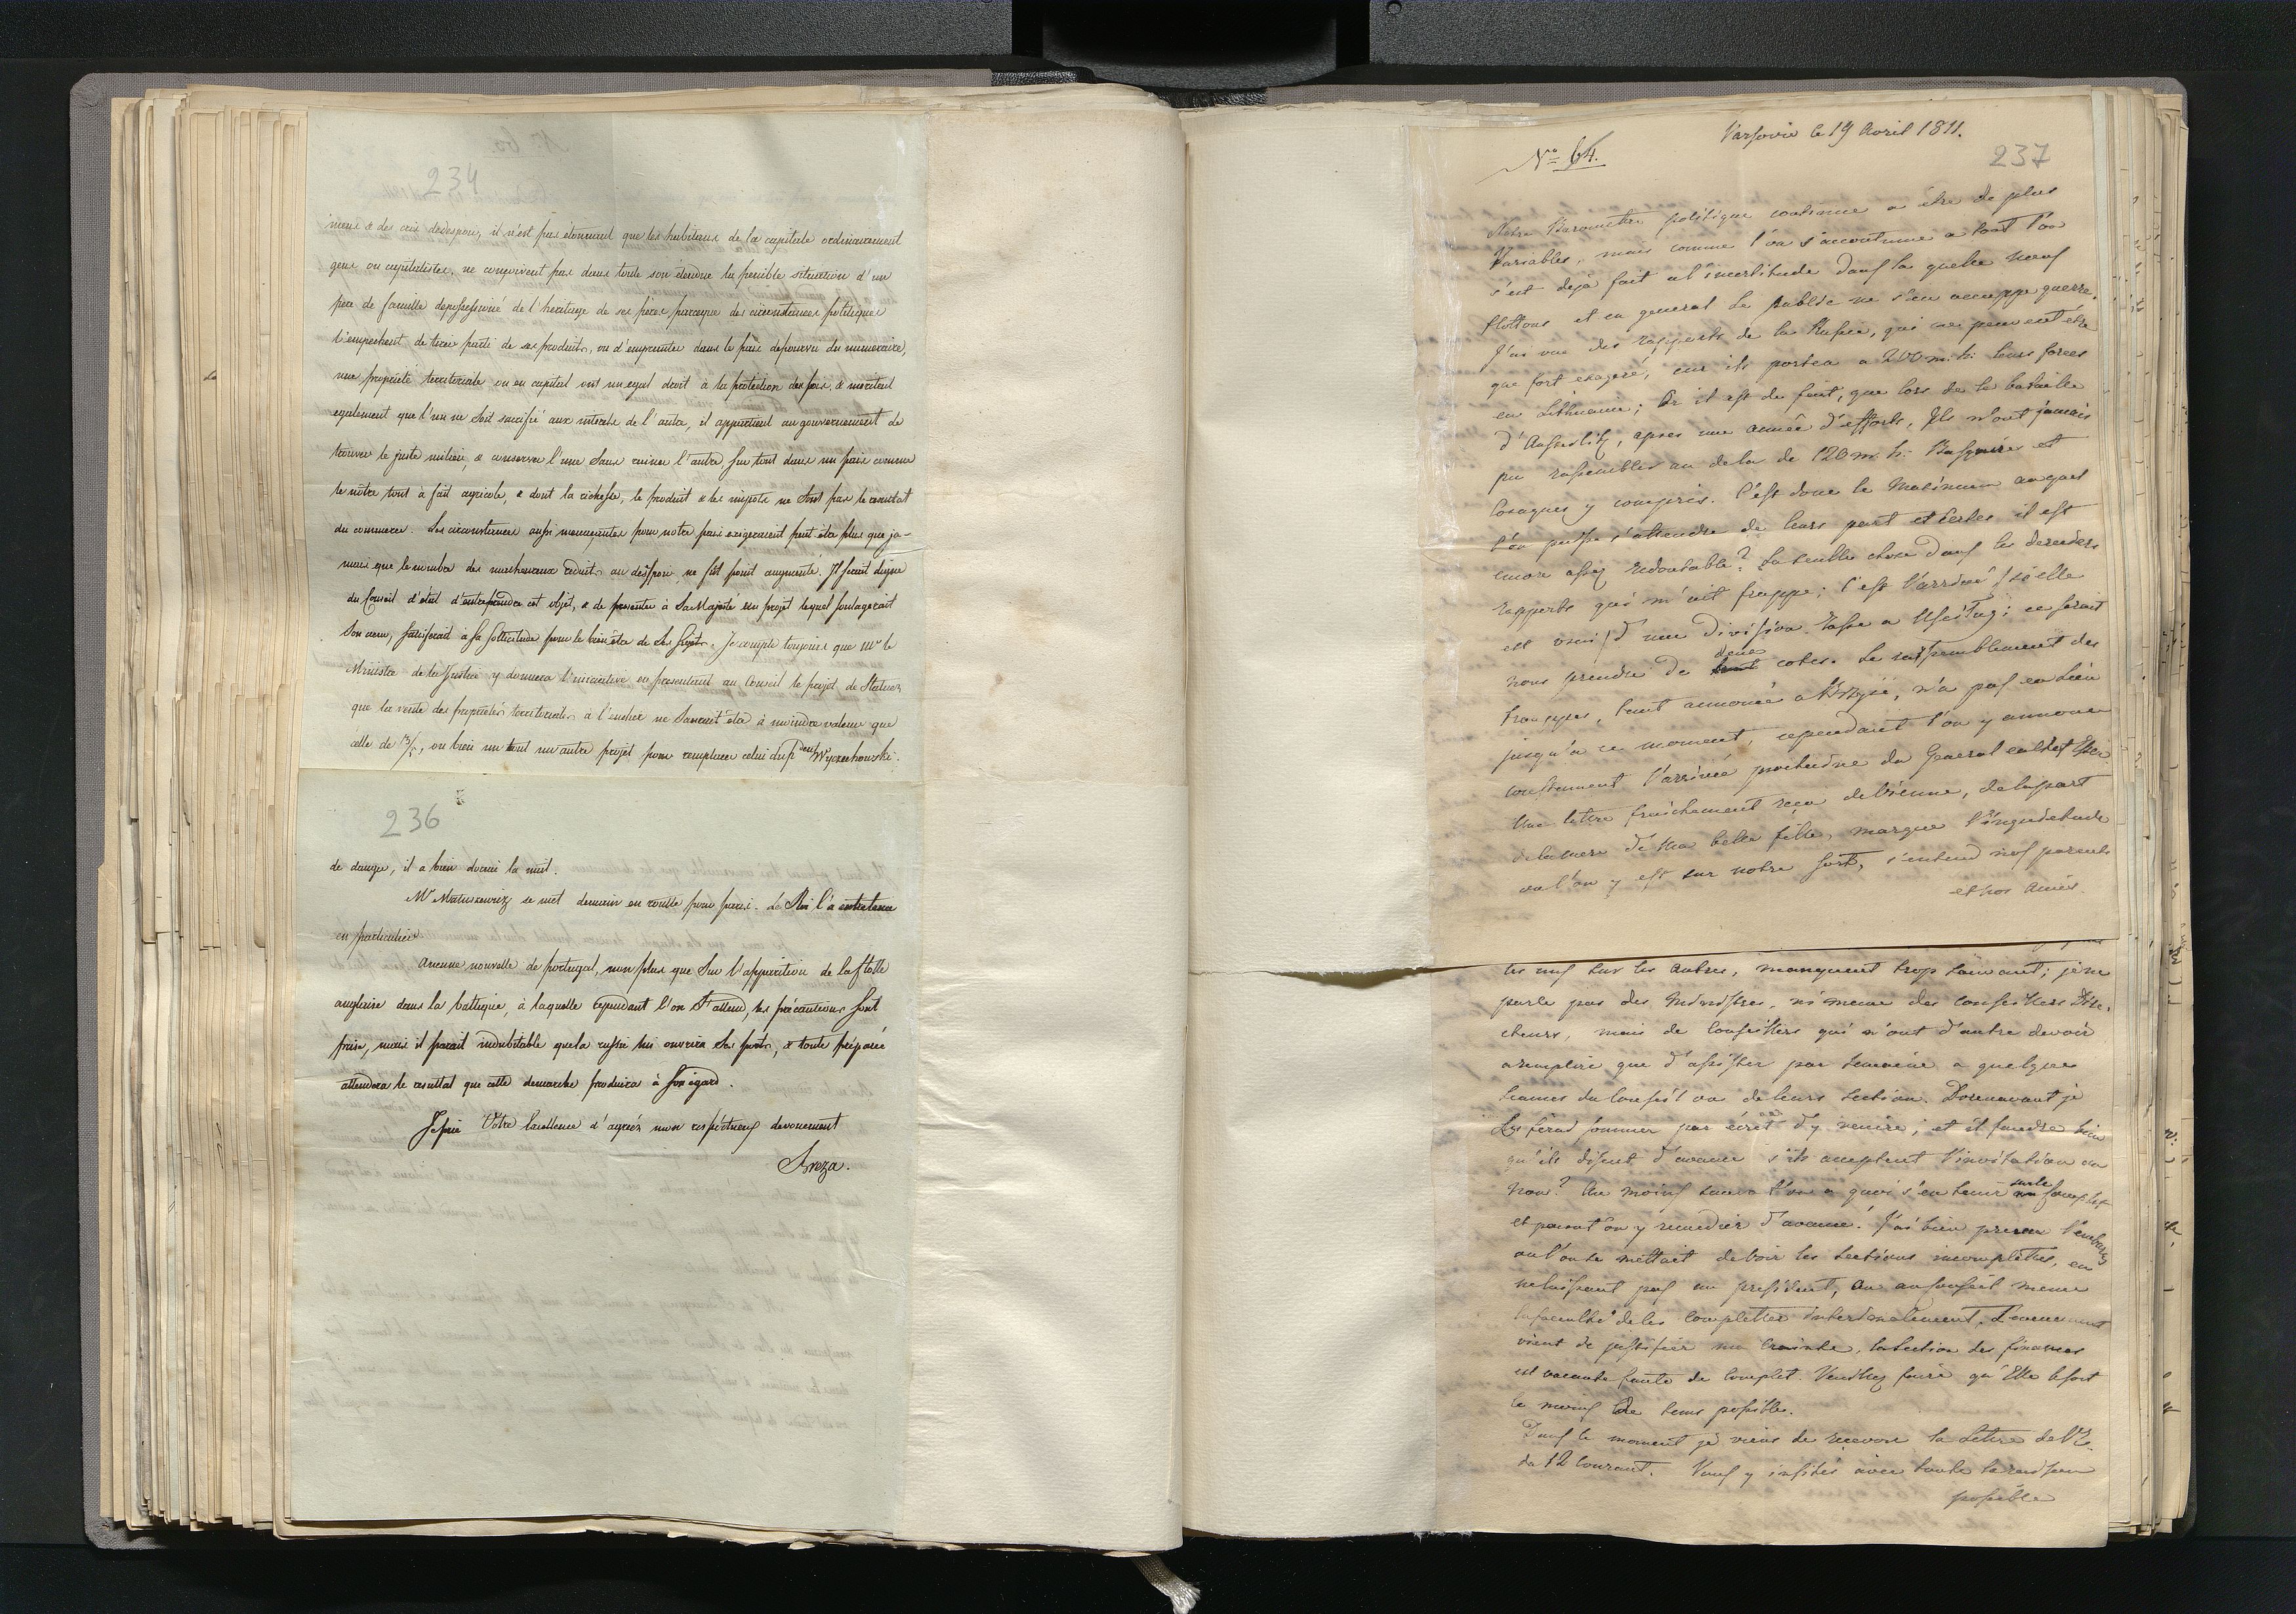 234
mens & des cris de desespoir, il n'est pas étonnant que les habitans de la capitale ordinairement
gens ou capitalistes, ne conçoivent pas dans toute son étendue la penible situation d'un
père de famille depossessioné de l'heritage de ses pères parceque des circonstances politiques
l'empechent de tirer parti de ses produits, ou d'emprunter dans le païs depourvu du numeraire,
une propriété territoriale ou en capital ont un egal droit à la protection des lois, & meritent
egalement que l'un ne soit sacrifié aux interets de l'autre, il appartient au gouvernement de
trouver le juste milieu, & conserver l'une sans ruiner l'autre, sur tout dans un païs comme
le nôtre tout à fait agricole, & dont la richesse, le produit & les impots ne sont pas le resultat
du commerce. Les circonstances aussi menaçantes pour notre païs exigeraient peut être plus que ja-
mais que le nombre des malheureux reduits au desespoir, ne fût point augmenté. Il serait digne
du Conseil d'état d'entreprendre cet objet, & de presenter à Sa Majesté un projet lequel soulagerait
son cœur, satisferait à sa sollicitude pour le bien être de ses sujets. Je compte toujours que Mr le
Ministre de la Justice y donnera l'iniciative en presentant au Conseil le projet de statuer
que la vente des propriétés territoriales à l'encher ne saurait être à moindre valeur que
celle de 3/5, ou bien un tout un autre projet pour remplacer celui du Pdent Wyczechowski.
236
de danger, il a bien dormi la nuit.
Mr Matuszewicz se met demain en routte pour paris. Le Roi l'a entretenu
en particulier.
Aucune nouvelle de portugal, non plus que sur l'apparition de la flotte
anglaise dans la baltique, à laquelle cependant l'on s'attend, les précautions sont
prises, mais il parait indubitable que la russie lui ouvrira ses ports, & toute préparée
attendera le resultat que cette demarche produira à son égard.
Je prie Votre Excellence d'agréer mon respectueux devouement
Breza.
Varsovie le 19 Avril 1811.
No 64.
237
Notre Barometre politique continue a être de plus
Variables, mais comme l'on s'accoutume a tout l'on
s'est déja fait a l'incertitude dans la quelle nous
flottons et en general le public ne s'en occuppe guerre.
J'ai vue des rapports de la Russie, qui ne peuvent être
que fort exageré, car ils porten a 200 m. h. leurs forces
en Lithuanie; Or il est de fait, que lors de la bataille
d'Austerlitz, apres une année d'efforts, Ils n'ont jamais
pu rassembler au dela de 120 m. h.
Cosaques y compris. C'est donc le Maximum au quel
l'on puisse s'attendre de leurs part et certes il est
encore assez redoutable? La seulle chose dans les derniers
rapports qui m'ait frappe; c'est l'arrivé / si elle
est vrai / d'une division Russe a Uscilug; ce serait
nous prendre de deux cotés. Le rassemblement des
trouppes, tant annoncé a n'a pas eu lieu
jusqu'a ce moment, cependant l'on y annonce
constamment l'arrivée prochaine du General en chef
Une lettre fraichement reçu de Vienne, de la part
de la mere de ma belle fille, marque l'inquietude
ou l'on y est sur notre sort, s'entend nos parents
et nos amis.
les uns sur les autres, manquent trop souvant; je ne
parle pas des Ministres, ni meme des conseillers Dire-
cteurs, mais de Conseillers qui n'ont d'autre devoir
a remplire que d'assister par semaine a quelques
seances du Conseil ou de leurs section. Dorenavant je
les ferai sommer par écrit d'y venire; et il faudra bien
qu'ils disent d'avance s'ils acceptent l'invitation ou
non? Au moins saura l'on a quoi s'en tenir sur le complet
et poura t'on y remedier d'avance. J'ai bien prevu l'embaras
ou l'on se mettait de voir les sections incomplettes, en
ne laissant pas au president, ou au conseil meme
la faculté de les completter interimalement. L'evenement
vient de justifier ma crainte, la section des finances
est vacante faute de complet. Veuillez faire qu'Elle le soit
le moins de tems possible.
Dans le moment je viens de recevoir la lettre de V. E.
du 12 Courant. Vous y insistés avec toute la raison
possible